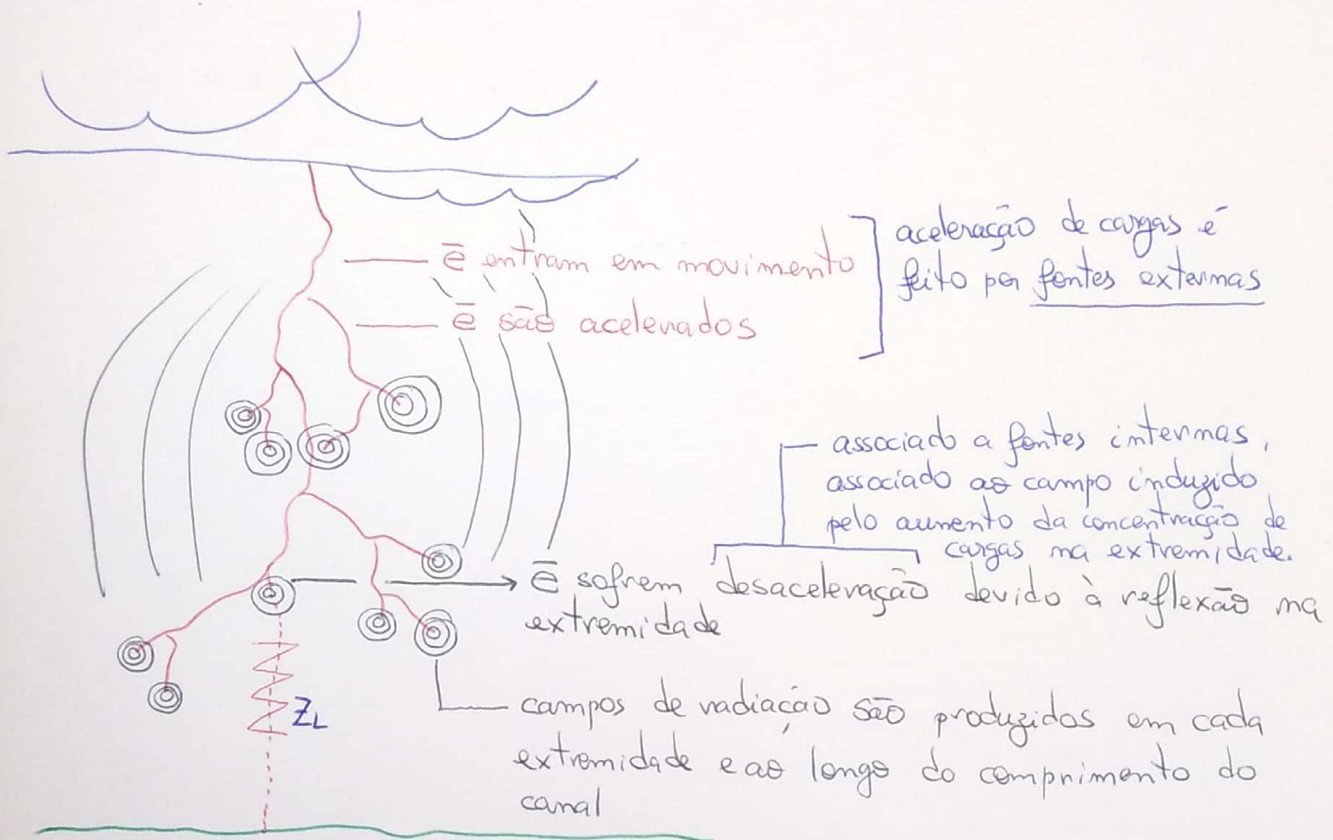 ē entram em movimento
ē são acelerados
aceleração de cargas é
feito por fontes externas
associado a fontes internas,
associado ao campo induzido
pelo aumento da concentração de
cargas na extremidade.
ē sofrem desaceleração devido à reflexão na
extremidade
ZL
campos de radiação são produzidos em cada
extremidade e ao longo do comprimento do
canal